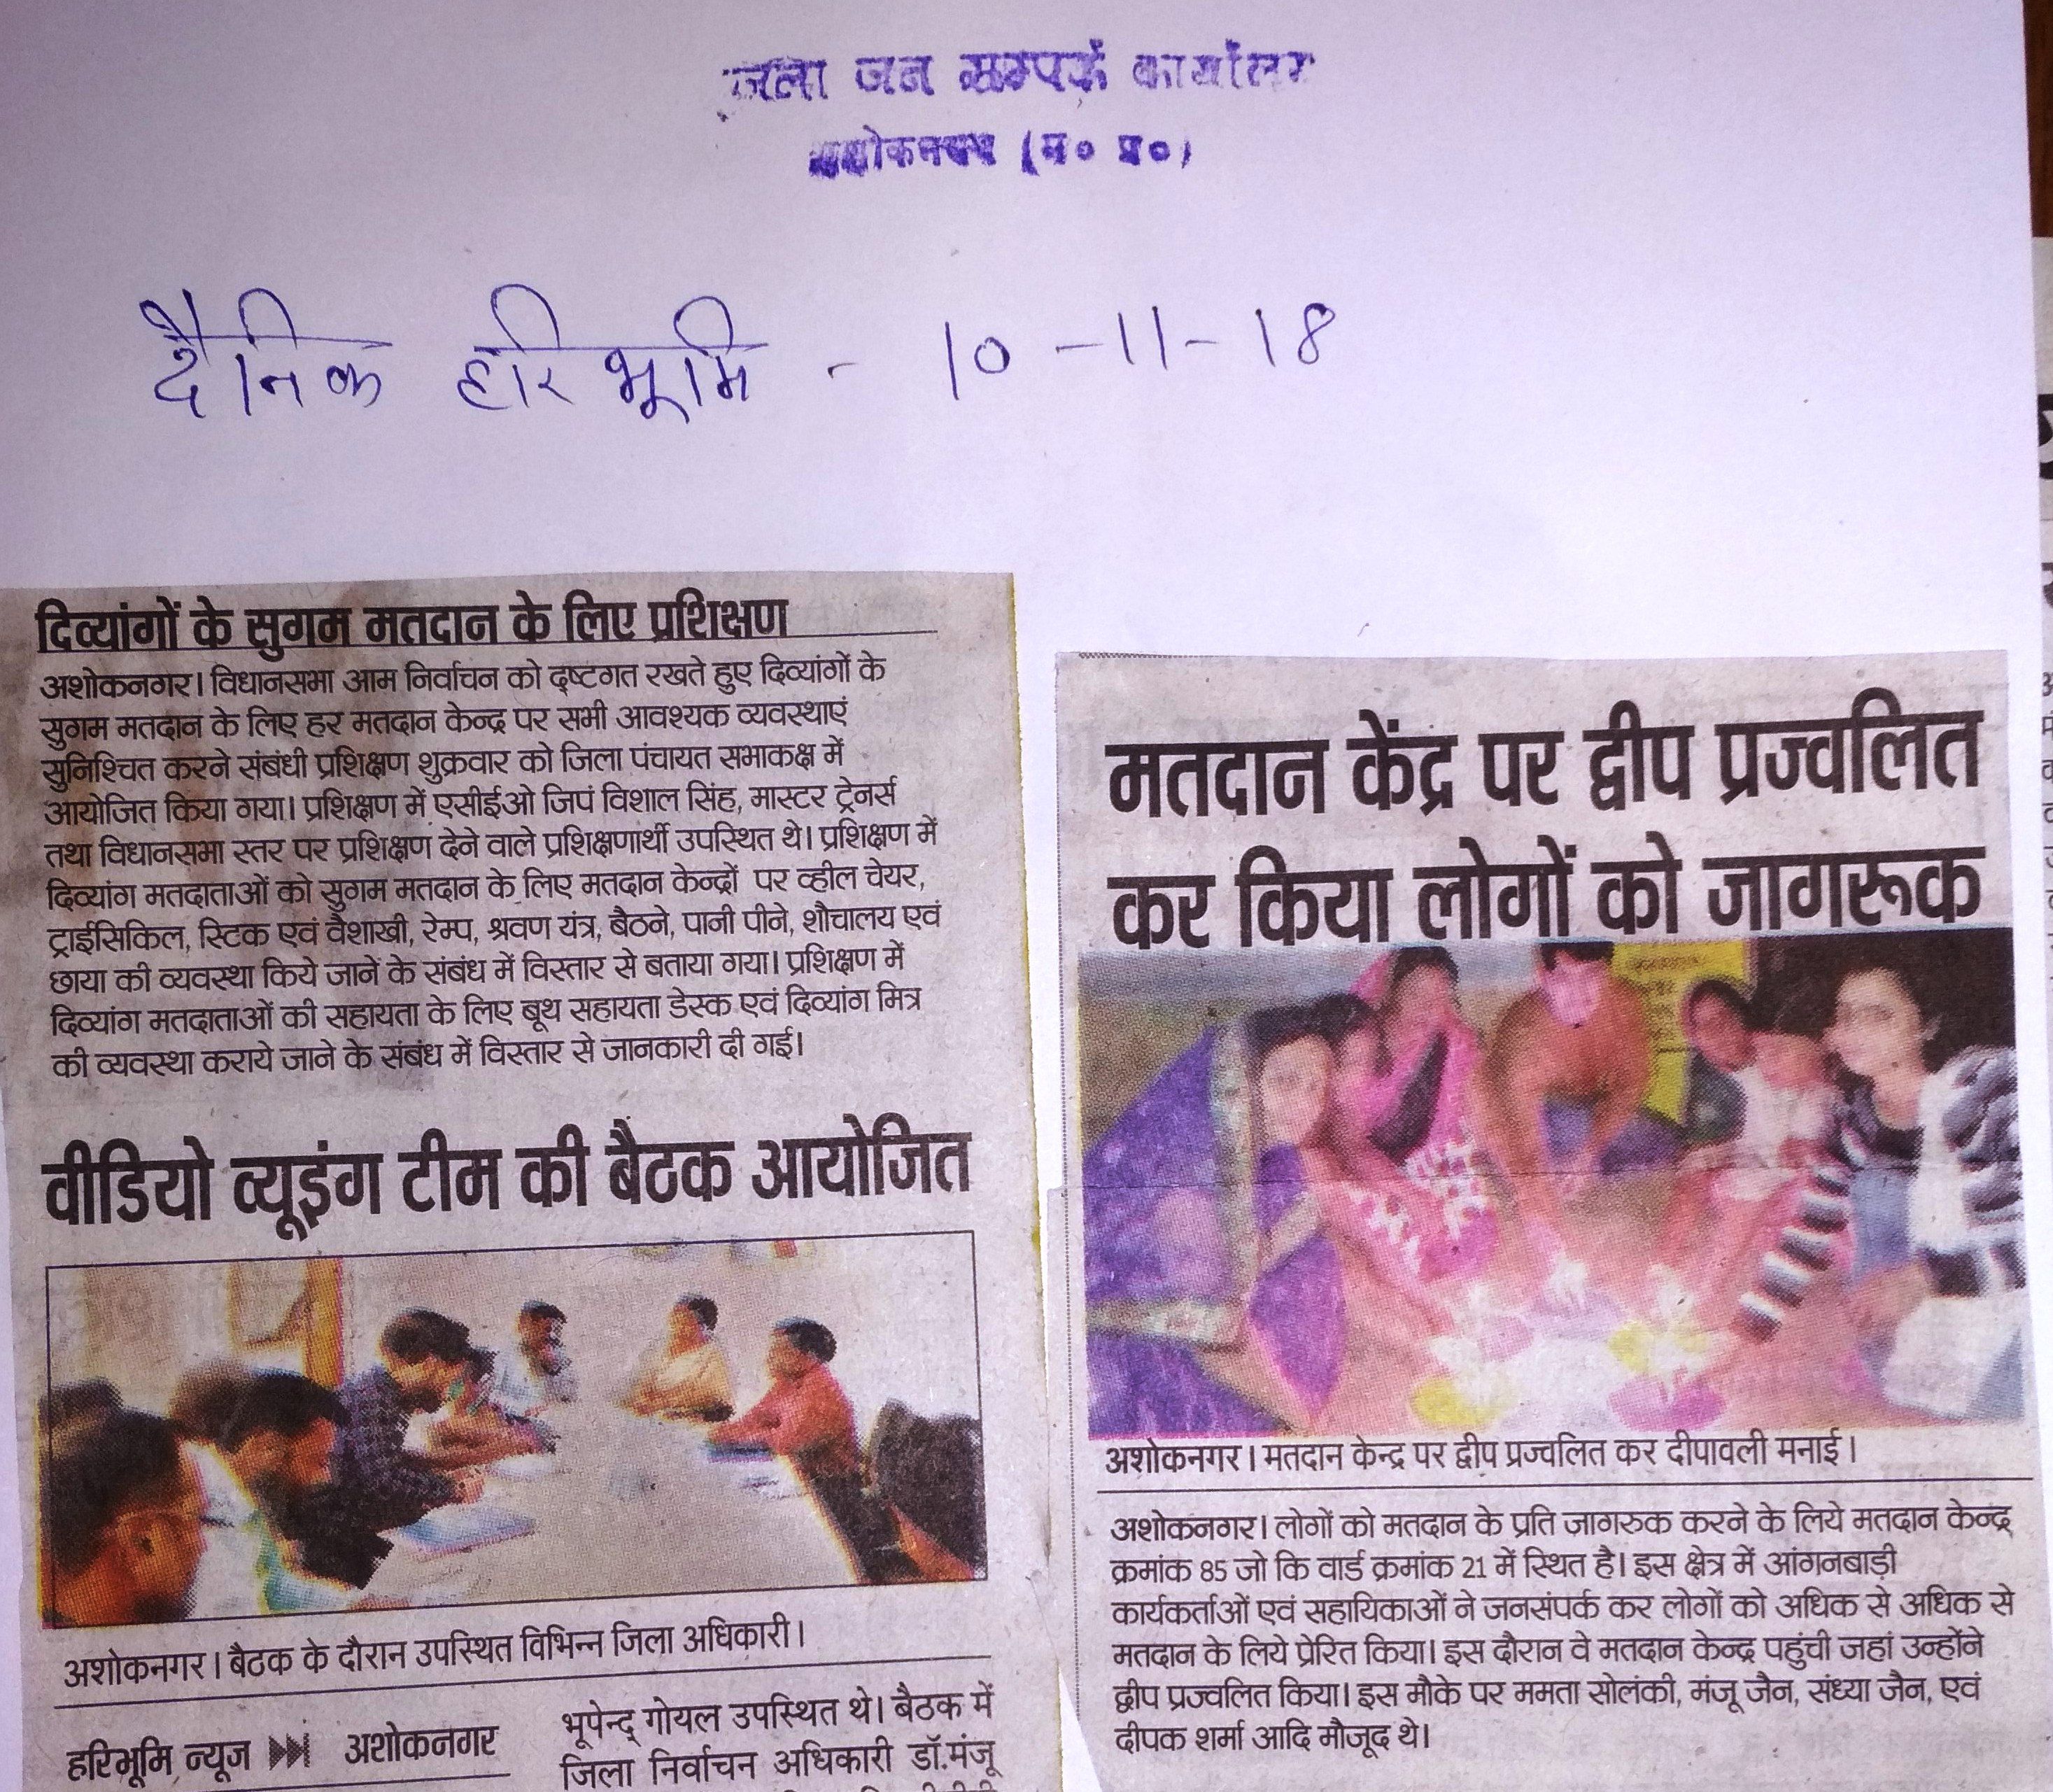 जिला जन सम्पर्क कार्यालय
अशोकनगर (म० प्र०)
दैनिक हरिभूमि - 10-11-18
दिव्यांगों के सुगम मतदान के लिए प्रशिक्षण
अशोकनगर। विधानसभा आम निर्वाचन को दृष्टगत रखते हुए दिव्यांगों के
सुगम मतदान के लिए हर मतदान केन्द्र पर सभी आवश्यक व्यवस्थाएं
सुनिश्चित करने संबंधी प्रशिक्षण शुक्रवार को जिला पंचायत सभाकक्ष में
आयोजित किया गया। प्रशिक्षण में एसीईओ जिपं विशाल सिंह, मास्टर ट्रेनर्स
तथा विधानसभा स्तर पर प्रशिक्षण देने वाले प्रशिक्षणार्थी उपस्थित थे। प्रशिक्षण में
दिव्यांग मतदाताओं को सुगम मतदान के लिए मतदान केन्द्रों पर व्हील चेयर,
ट्राईसिकिल, स्टिक एवं वैशाखी, रेम्प, श्रवण यंत्र, बैठने, पानी पीने, शौचालय एवं
छाया की व्यवस्था किये जाने के संबंध में विस्तार से बताया गया। प्रशिक्षण में
दिव्यांग मतदाताओं की सहायता के लिए बूथ सहायता डेस्क एवं दिव्यांग मित्र
की व्यवस्था कराये जाने के संबंध में विस्तार से जानकारी दी गई।
वीडियो व्यूइंग टीम की बैठक आयोजित
अशोकनगर। बैठक के दौरान उपस्थित विभिन्न जिला अधिकारी।
हरिभूमि न्यूज अशोकनगर
भूपेन्द्र गोयल उपस्थित थे। बैठक में
जिला निर्वाचन अधिकारी डॉ.मंजू
मतदान केंद्र पर द्वीप प्रज्वलित
कर किया लोगों को जागरूक
अशोकनगर। मतदान केन्द्र पर द्वीप प्रज्वलित कर दीपावली मनाई।
अशोकनगर। लोगों को मतदान के प्रति जागरुक करने के लिये मतदान केन्द्र
क्रमांक 85 जो कि वार्ड क्रमांक 21 में स्थित है। इस क्षेत्र में आंगनबाड़ी
कार्यकर्ताओं एवं सहायिकाओं ने जनसंपर्क कर लोगों को अधिक से अधिक से
मतदान के लिये प्रेरित किया। इस दौरान वे मतदान केन्द्र पहुंची जहां उन्होंने
द्वीप प्रज्वलित किया। इस मौके पर ममता सोलंकी, मंजू जैन, संध्या जैन, एवं
दीपक शर्मा आदि मौजूद थे।